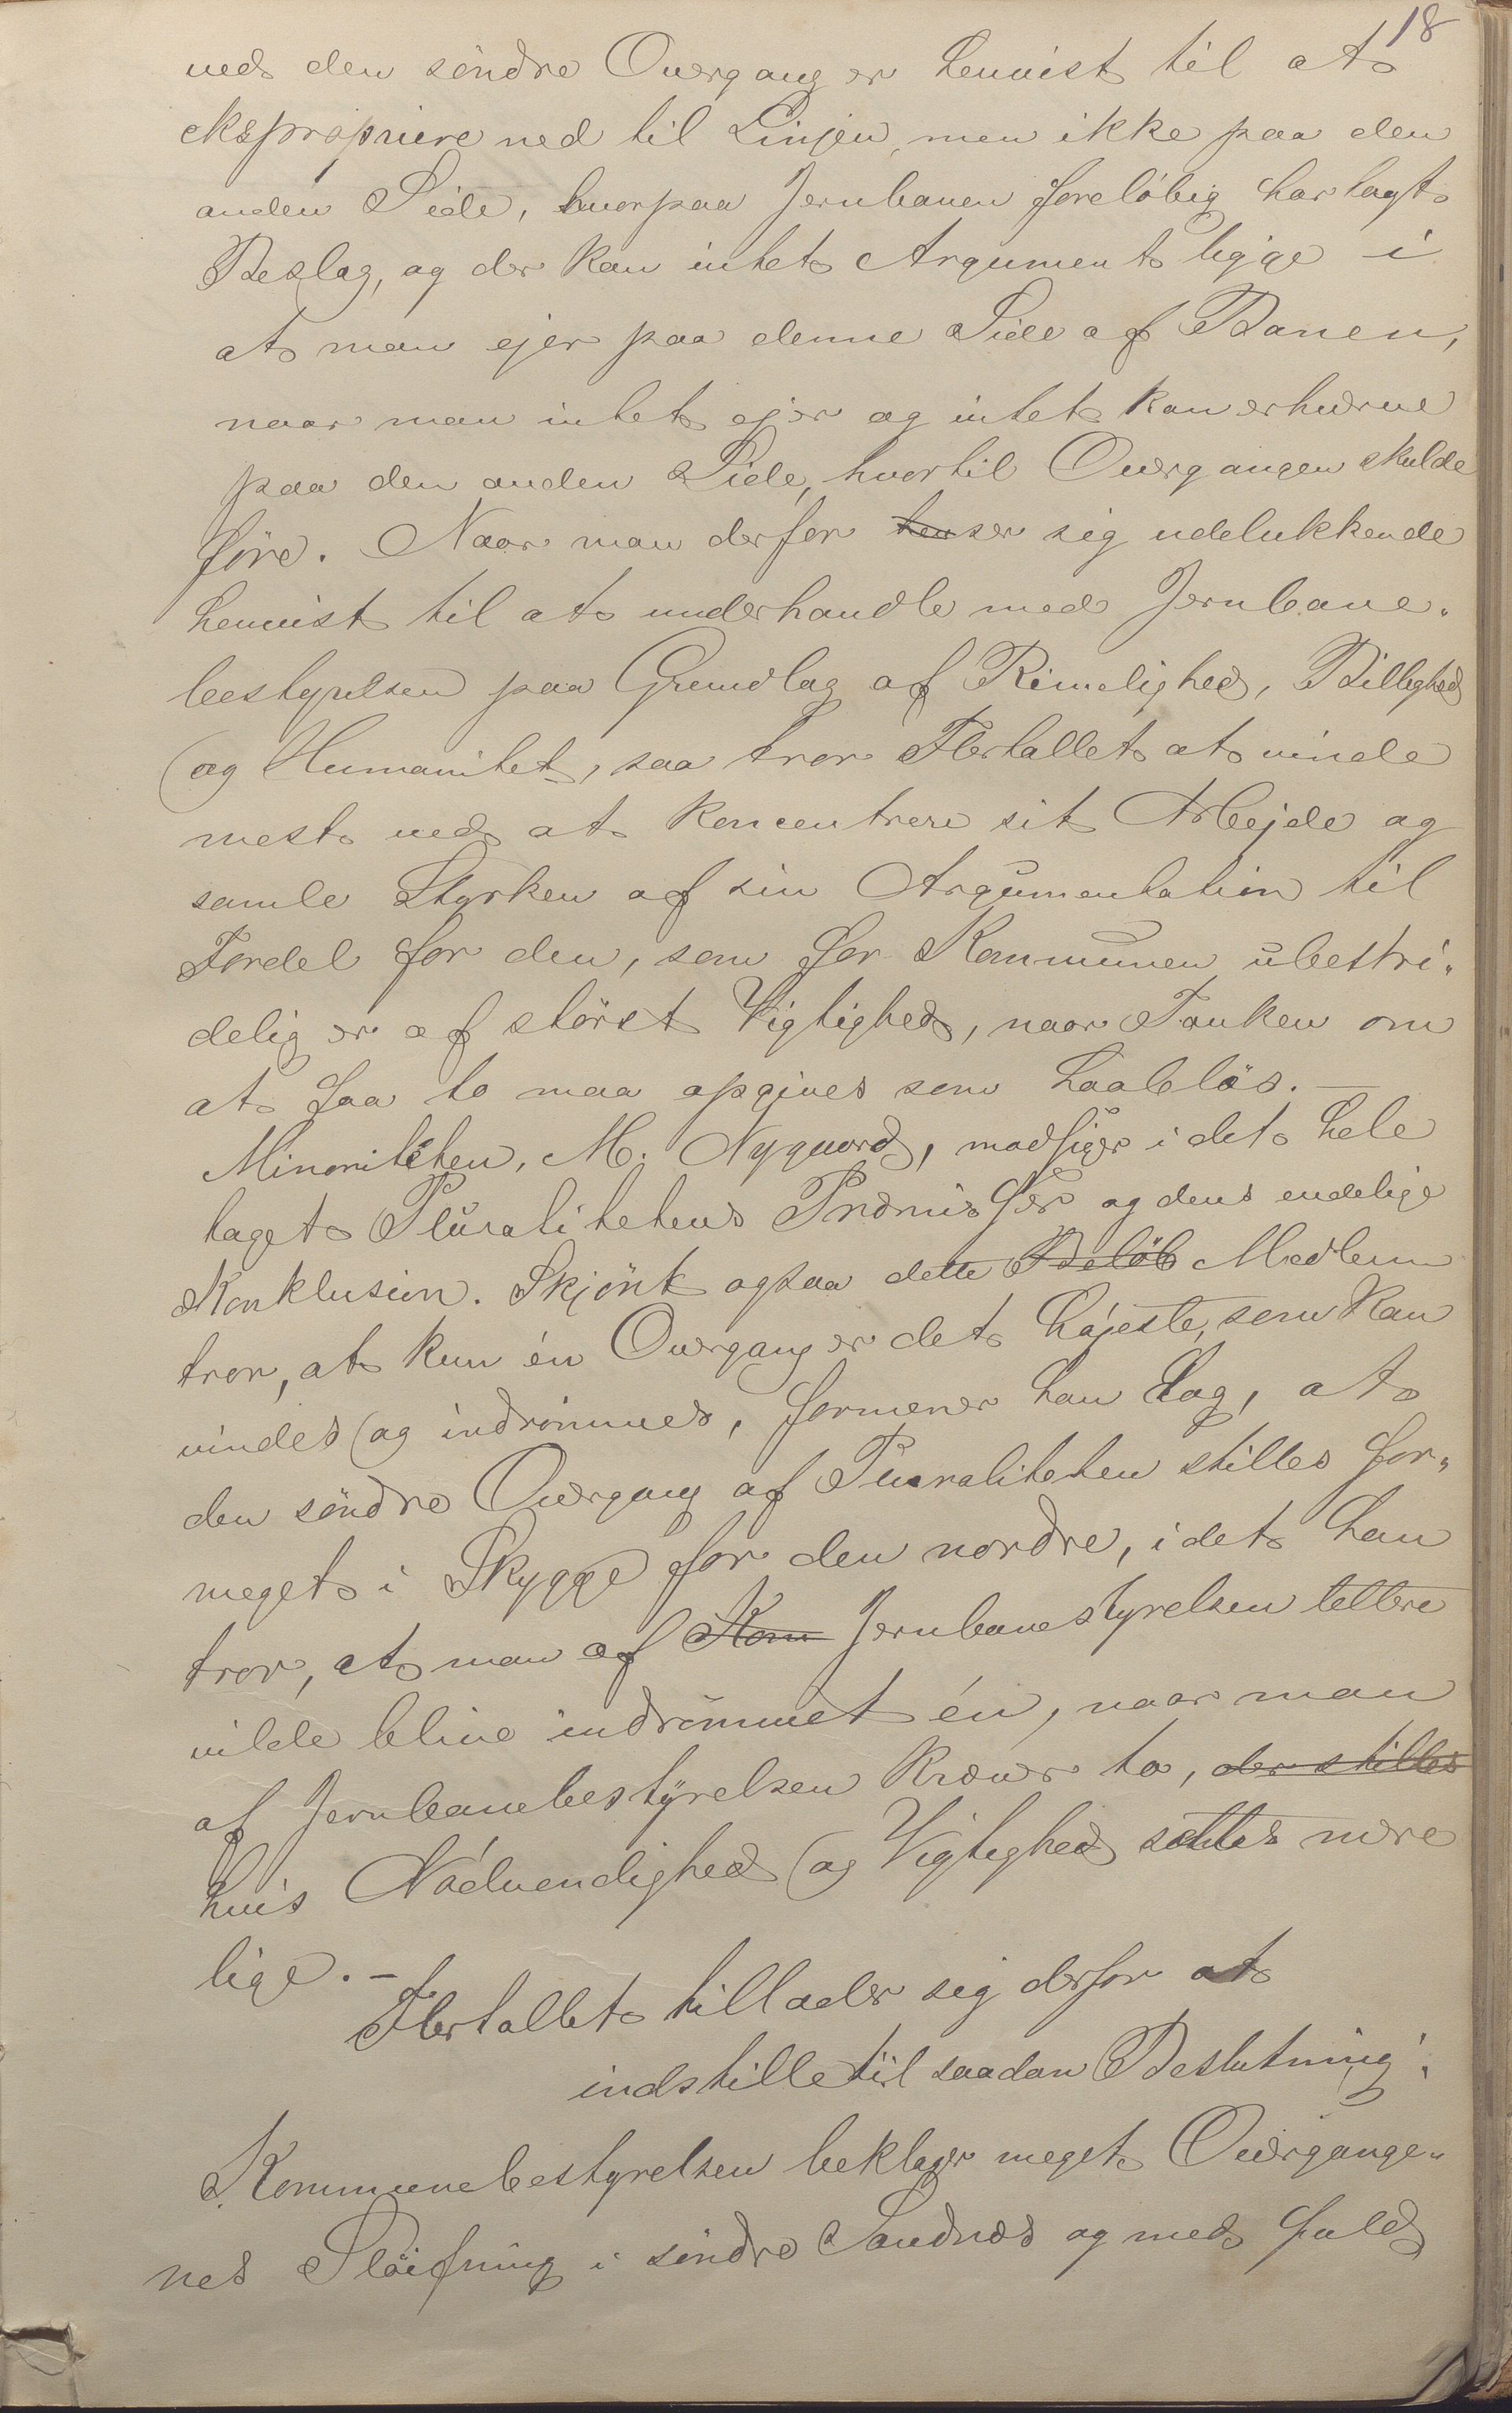 18
ved den söndre Overgang er henvist til at
ekspropriere ned til Linjen, men ikke paa den
anden Side, hvorpaa Jernbanen foreløbig har lagt
Beslag, og der kan intet Argument ligge i
at man ejer paa denne Side af Banen,
naar man intet ejer og intet kan erhverve
paa den anden Side, hvortil Overgangen skulde
före. Naar man derfor hen ser sig udelukkende
henvist til at underhandle med Jernbane-
bestyrelsen paa Grundlag af Rimelighed, Billighed
og Humanitet, saa tror Flertallet at vinde
mest ved at koncentrere sit Arbejde og
samle Styrken af sin Argumentation til
Fordel for den, som for Kommunen ubestri-
delig er af störst Vigtighed, naar Tanken om
at faa to maa opgives som haablös. —
Minoriteten, M. Nygaard, modsiger i det hele
taget Pluralitetens Præmisser og dens endelige
Konklusion. Skjönt ogsaa dette Belöb Medlem
tror, at kun én Overgang er det højeste, som kan
vindes og indrömmes, formener han dog, at
den söndre Overgang af Pluraliteten stilles for-
meget i Skygge for den nordre, idet han
tror, at man af Kom Jernbanestyrelsen lettere
vilde blive indrömmet én, naar man
af Jernbanebestyrelsen kræver to, der stilles
hvis Nödvendighed og Vigtighed sættes nære
lige. -
Flertallet tillader sig derfor at
indstille til saadan Beslutning:
Kommunebestyrelsen beklager meget Overgange-
nes Slöifning i söndre Sandnæs og med fuld